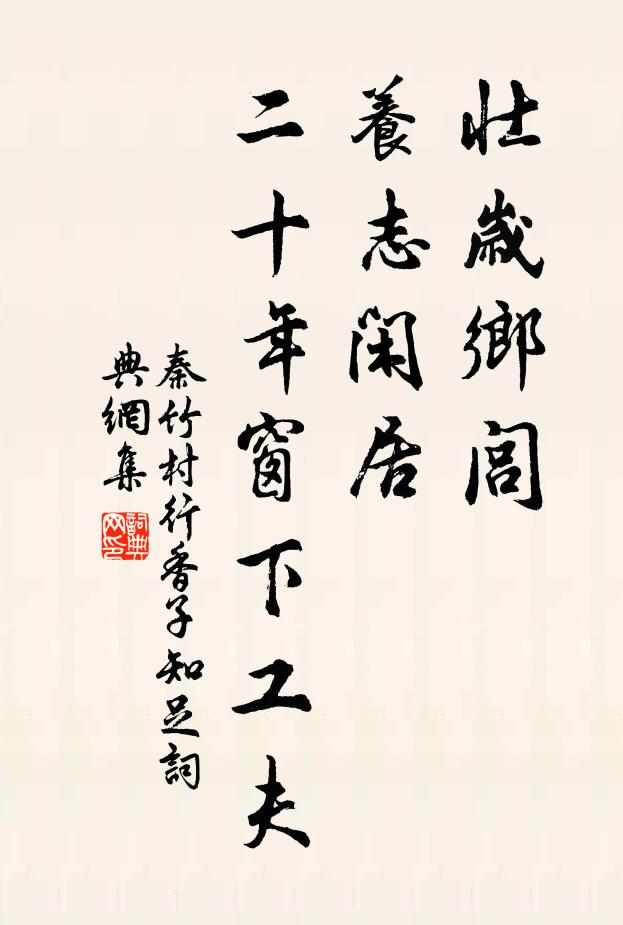 壯歲鄉閭
養志閑居
二十年窗下工夫
秦竹村行香子知足詞
典網集
詞典网印